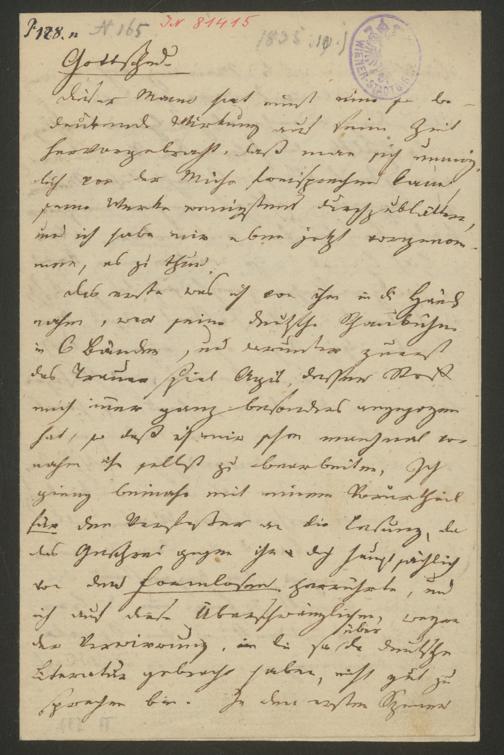 P 128.n N 165 IN 81415 1835
WIENER STADTBIBL
Gottsched
Dieser Mann hat einst eine so be-
deutende Wirkung auf seine Zeit
hervorgebracht, daß man sich unmög-
lich von der Mühe freisprechen kann
seine Werke wenigstens durchzublättern,
und ich habe mir eben jetzt vorgenom-
men, es zu thun.
Das erste was ich von ihm in die Händ
nahm, war seine deutsche Schaubühne
in 6 Bänden, und darunter zuerst
das Trauerspiel Agis, dessen Stoff
mich immer ganz besonders angezogen
hat, so daß ich mir schon manchmal vor-
nahm ihn selbst zu bearbeiten. Ich
gieng beinahe mit einem Vorurtheil
für den Verfasser an die Lesung, da
das Geschrei gegen ihn doch hauptsächlich
von den formlosen herrührte, und
ich auf diese Überschwänglichen, wegen
der Verwirrung, in die sie die deutsche
Literatur gebracht haben, nicht gut zu
sprechen bin. In den ersten Szenen